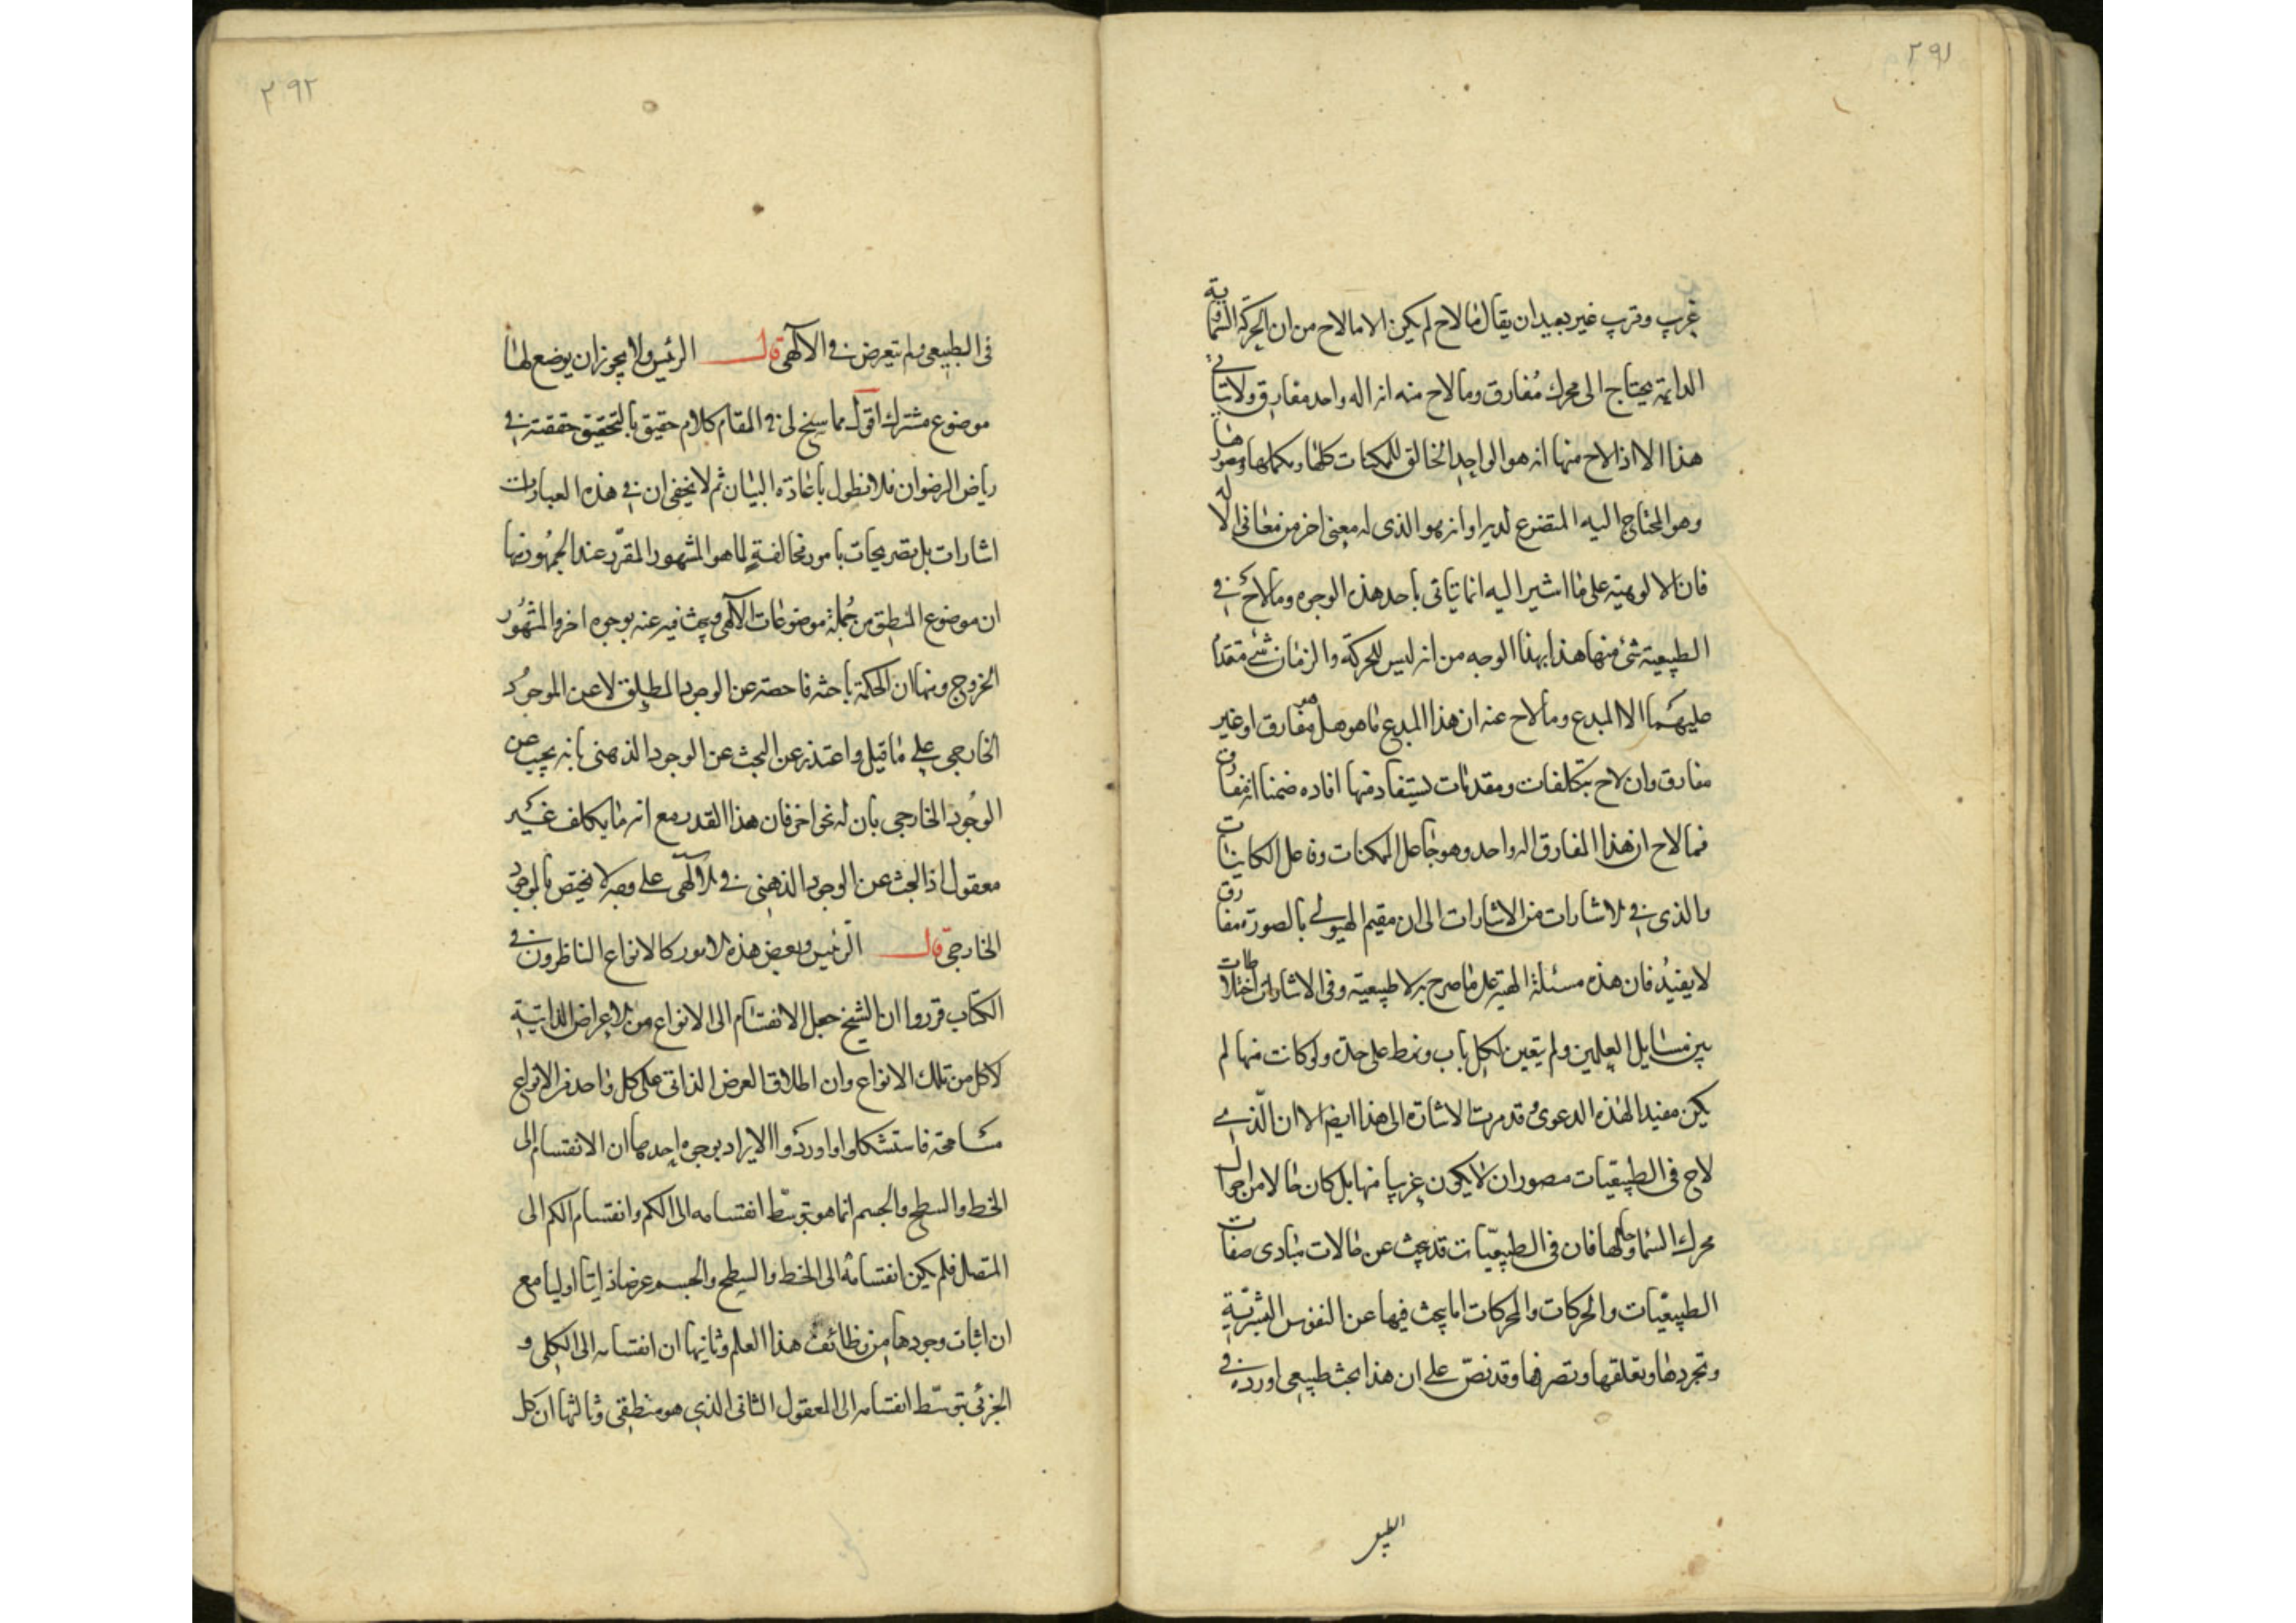 ٢٩١
غريب وقريب غير بعيد ان يقال مالاح لم يكن الا مالاح من ان الحركة السماوية
الدايمة يحتاج الى محرك مُفارق ومالاح منه انه اله واحد مفارق ولا يتاتى
هذا الا اذا لاح منها انه هو الواجد الخالق للمكنات كلها ومكملها ومصورها
وهو المحتاج اليه المتضرع لديه او انه هو الذى له معنى اخر من معانى الاله
فان الالوهية على ما اشير اليه انما يتاتى باحد هذه الوجوه ومالاح فى
الطبيعية شئ منها هذا بهذا الوجه من انه ليس للحركة والزمان شئ متقدما
عليهما الا المبدع ومالاح عنه ان هذا المبدع ما هو هل هو مفارق او غير
مفارق وان لاح بتكلفات ومقدمات يستفاد منها افاده ضمنا انه مفارق
فمالاح ان هذا المفارق اله واحد وهو جاعل الممكنات وفاعل الكاينات
والذى فى الاشارات من الاشارات الى ان مقيم الهيولى بالصورة مفارق
لا يفيدُ فان هذه مسئلة الهية على ما صرح به لا طبيعية وفى الاشارات اختلاطات
بين مسايل العلمين ولم يتعين لكل باب ونمط على حدة ولو كانت منها لم
يكن مفيدا لهذه الدعوى وقد مرت الاشارة الى هذا ايضا الا ان الّذى
لاح فى الطبيعيات مصور ان لا يكون غريبا منها بل كان حالا من احوال
محرك السماء وحالها فان فى الطبيعيّات قد يبحث عن حالات مبادى صفات
الطبيعيّات والحركات والمحركات اما يبحث فيها عن النفوس البشريّة
وتجردها وتعلقها وتصرفها وقد نصّ على ان هذا بحث طبيعى اورده فى
الطبيعى
٢٩٢
فى الطبيعى ولم يتعرض فى الآلهى قال الرئيس ولا يجوز ان يوضع لها
موضوع مشترك اقول مما سنح لى فى المقام كلام حقيق بالتحقيق حققته فى
رياض الرضوان فلا نطول باعادة البيان ثم لا يخفى ان فى هذه العبارات
اشارات بل تصريحات بامور مخالفةٍ لما هو المشهور المقرّر عند الجمهُور منها
ان موضوع المنطق من جُملة موضوعات الآلهى ويبحث فيه عنه بوجوه اخر والمشهُور
الخروج ومنها ان الحكمة باحثه فاحصه عن الوجود المطلق لا عن الموجُود
الخارجى على ما قيل واعتذر عن البحث عن الوجود الذهنى بانه يجيب عن
الوجُود الخارجى بان له نحوا اخر فان هذا القدر مع انه مما يكلف غير
معقول اذ البحث عن الوجود الذهنى فى الآلهى على وجه لا يختص بالوجود
الخارجى قال الرئيس وبعض هذه الامور كالانواع الناظرون فى
الكتاب قرروا ان الشيخ جعل الانقسام الى الانواع من الاعراض الذاتية
لا كل من تلك الانواع وان اطلاق العرض الذاتى على كل واحد من الانواع
مسامحة فاستشكلوا واوردُوا الايراد بوجوه احدها ان الانقسام الى
الخط والسطح والجسم انما هو بتوسّط انقسامه الى الكم وانقسام الكم الى
المتصل فلم يكن انقسامهُ الى الخط والسطح والجسم عرضا ذاتيا اوليا مع
ان اثبات وجودها من وظائف هذا العلم وثانيها ان انقسامه الى الكلى و
الجزئى بتوسّط انقسامه الى المعقول الثانى الذى هو منطقى وثالثها ان كل